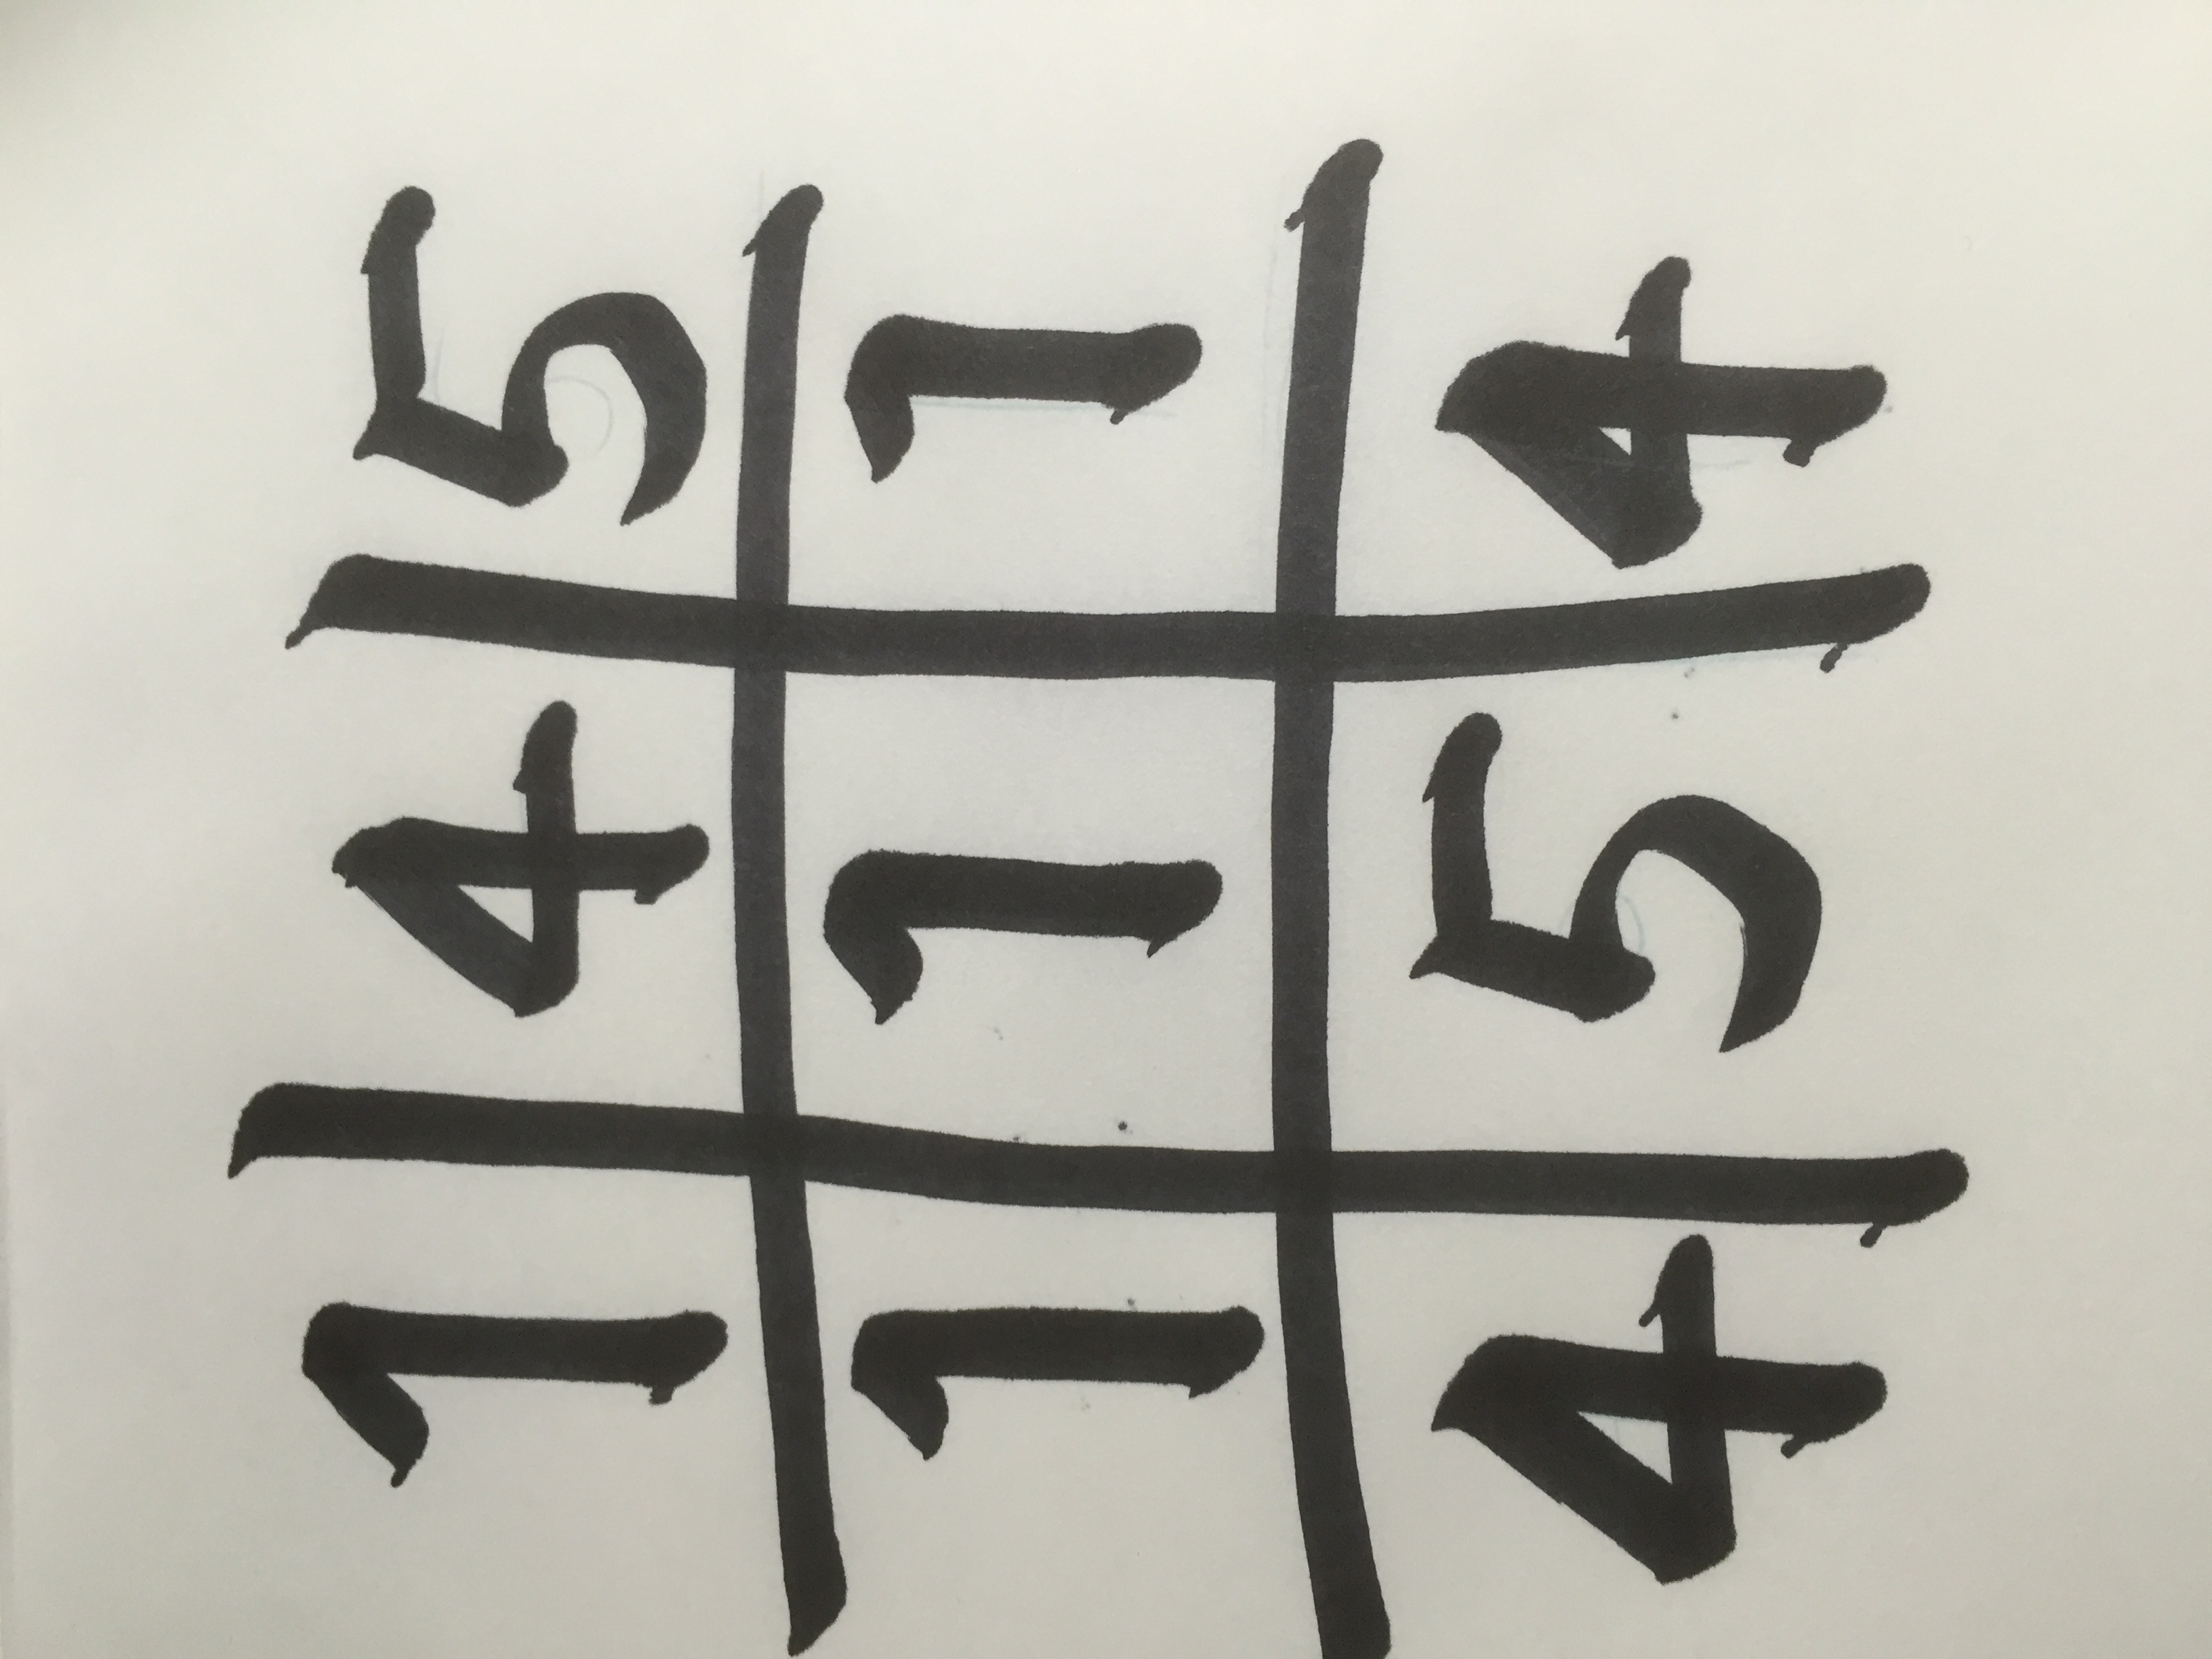 1 4 5
1 1 1
4 5 4